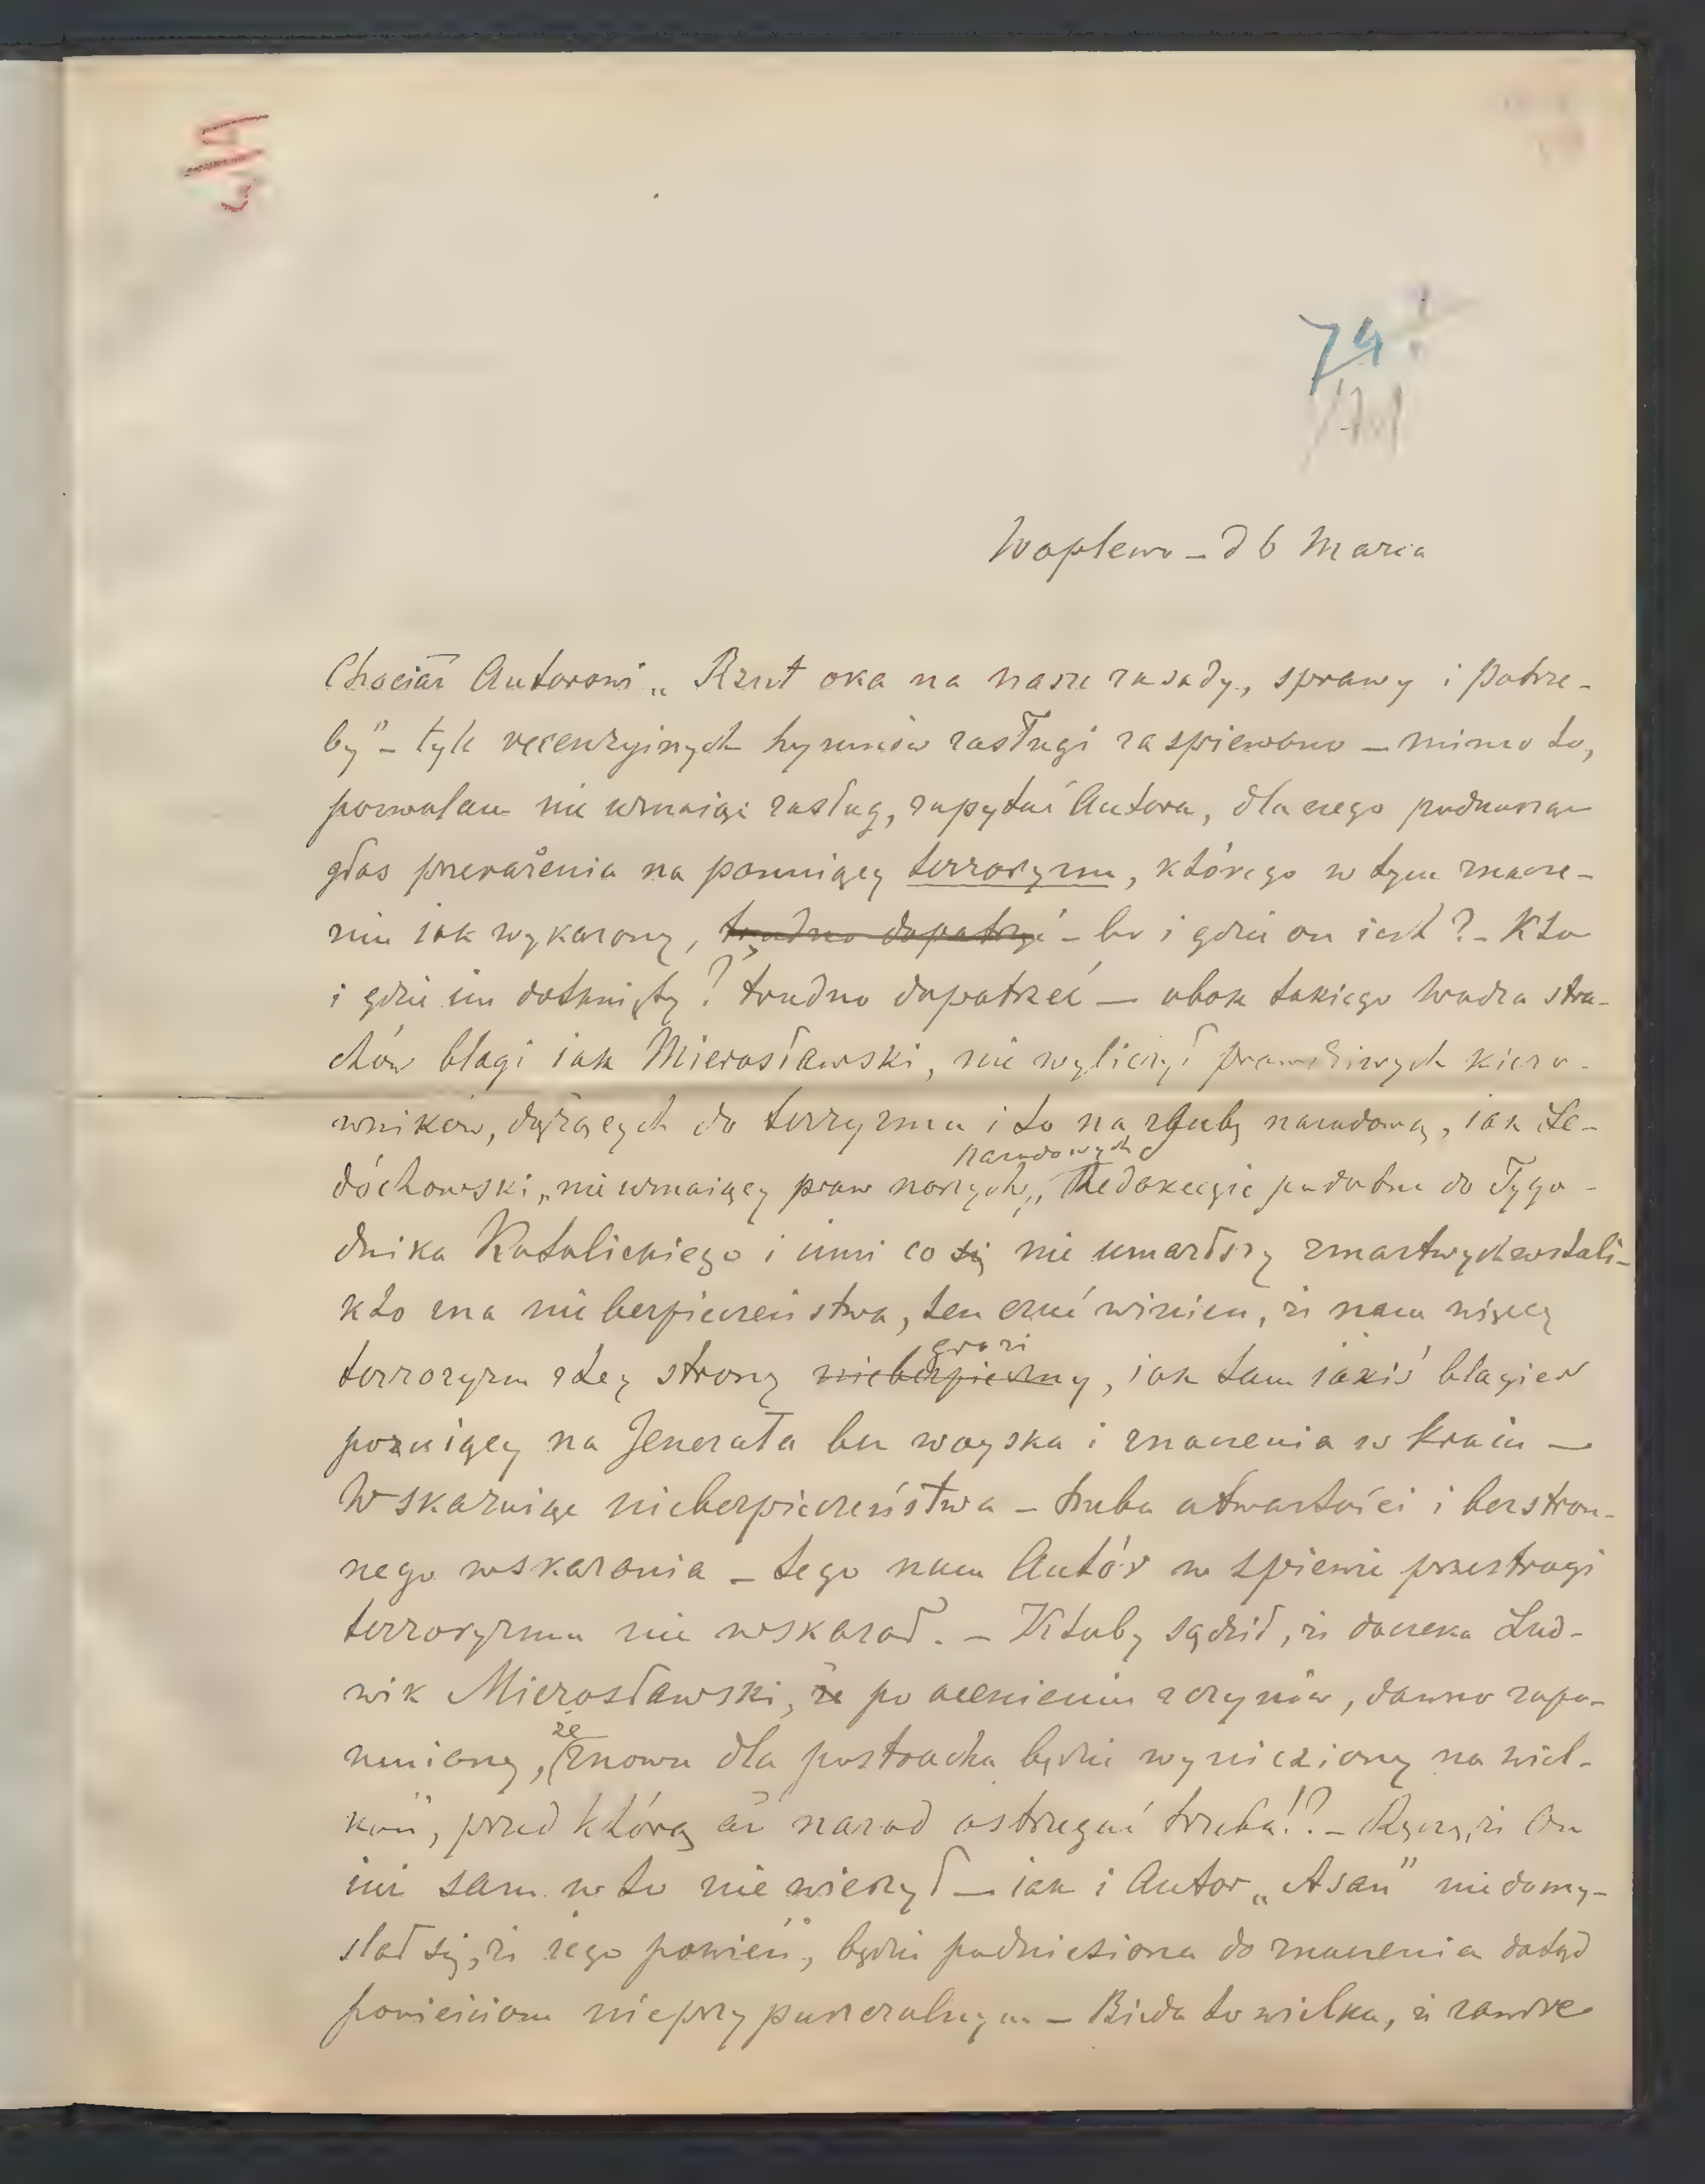 74
Waplewo – d 6 Marca
Chociaż Autorowi „Rzut oka na nasze zasady, sprawy i potrze-
by” – tyle recenzyinych hymnów zasługi zaspiewano – mimo to,
pozwalam nie uwnaiąc zasług, zapytać Autora, dla czego podnosząc
głos przerażenia na panuiący terroryzm, którego w tym znacze-
niu iak wykazany, trudno dopatrzyć – bo i gdzie on iest? – Kto
i gdzie im dotknięty? trudno dopatrzeć – obok takiego wodza stra-
chów blagi iak Mierosławski, nie wyliczył prawdziwych kiero-
wników, dążących do terryzmu i to na zgubę narodową, iak Le-
dóchowski, „nieuznaiący praw naszych narodowych”, Redakcyie podobne do Tygo-
dnika Katolickiego i inni co się nie umarłszy zmartwychwstali –
kto zna niebezpieczeństwa, ten czuć winien, że nam więcy
terroryzm z tey strony niebezpieczny grozi, iak tam iakiś blagier
pozuiący na Jenerała bez woyska i znaczenia w kraiu –
Wskazuiąc niebezpieczeństwa – trzeba otwartości i bezstron-
nego wskazania – tego nam Autór w spiewie przestrogi
terroryzmu nie wskazał. – Ktoby sądził, że doczeka Lud-
wik Mierosławski, że po ocenieniu czynów, dawno zapo-
mniany, że znowu dla postrachu będzie wyniesiony na wiel-
kość, przed którą aż narod ostrzegać trzeba!? – Ręczę, że On
iuż sam w to nie wierzył – iak i Autor „Asan” nie domy-
slał się, że iego powieść, będzie podniesiona do znaczenia dotąd
powieściom nieprzypuszczalnym – Bieda to wielka, że zawsze